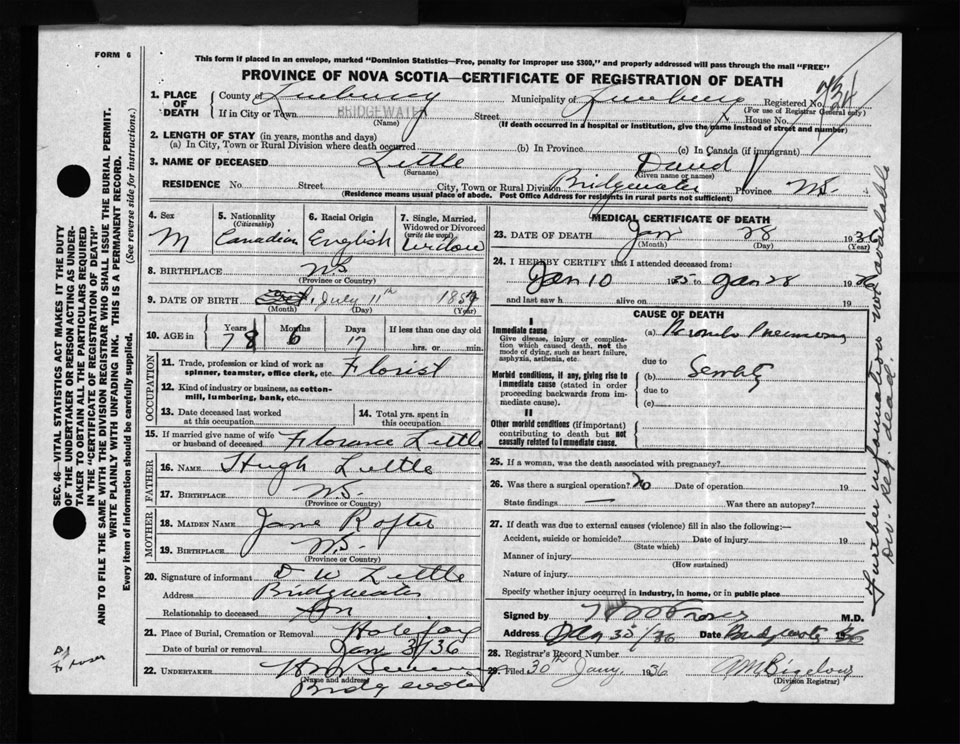 FORM 6
This form if placed in an envelope, marked "Dominion Statistics—Free, penalty for improper use $300," and properly addressed will pass through the mail "FREE"
PROVINCE OF NOVA SCOTIA—CERTIFICATE OF REGISTRATION OF DEATH
1. PLACE OF DEATH
County of Lunenburg Municipality of Lunenburg Registered No.
(For use of Registrar General only)
If in City or Town BRIDGEWATER Street House No.
(Name) (If death occurred in a hospital or institution, give the name instead of street and number)
2. LENGTH OF STAY (in years, months and days)
(a) In City, Town or Rural Division where death occurred (b) In Province (c) In Canada (if immigrant)
3. NAME OF DECEASED Little David
(Surname) (Given name or names)
RESIDENCE No. Street City, Town or Rural Division Bridgewater Province N.S.
(Residence means usual place of abode. Post Office Address for residents in rural parts not sufficient)
4. Sex M
5. Nationality (Citizenship) Canadian
6. Racial Origin English
7. Single, Married, Widowed or Divorced (write the word) Widow
8. BIRTHPLACE N.S
(Province or Country)
9. DATE OF BIRTH July 11th 1857
(Month) (Day) (Year)
10. AGE in Years 78 Months 6 Days 17 If less than one day old hrs. or min.
OCCUPATION
11. Trade, profession or kind of work as spinner, teamster, office clerk, etc. Florist
12. Kind of industry or business, as cotton-mill, lumbering, bank, etc.
13. Date deceased last worked at this occupation
14. Total yrs. spent in this occupation
15. If married give name of wife or husband of deceased Florence Little
FATHER
16. NAME Hugh Little
17. BIRTHPLACE N.S
(Province or Country)
MOTHER
18. MAIDEN NAME Jane
19. BIRTHPLACE N.S
(Province or Country)
20. Signature of informant D W Little
Address Bridgewater
Relationship to deceased Son
21. Place of Burial, Cremation or Removal Halifax
Date of burial or removal Jan 31/36
22. UNDERTAKER
(Name and address)
Bridgewater
MEDICAL CERTIFICATE OF DEATH
23. DATE OF DEATH Jan 28 193
(Month) (Day) (Year)
24. I HEREBY CERTIFY that I attended deceased from:
Jan 10 to Jan 28 19
and last saw h alive on 19
CAUSE OF DEATH
I
Immediate cause
Give disease, injury or complication which caused death, not the mode of dying, such as heart failure, asphyxia, asthenia, etc.
(a) Broncho Pneumonia
due to
Morbid conditions, if any, giving rise to immediate cause (stated in order proceeding backwards from immediate cause).
(b) Senility
due to
(c)
II
Other morbid conditions (if important) contributing to death but not causally related to immediate cause.
25. If a woman, was the death associated with pregnancy?
26. Was there a surgical operation? No Date of operation 19
State findings — Was there an autopsy?
27. If death was due to external causes (violence) fill in also the following:—
Accident, suicide or homicide? Date of injury 19
(State which)
Manner of injury
(How sustained)
Nature of injury
Specify whether injury occurred in industry, in home, or in public place
Signed by M.D.
Address Jan 30/36 Date Bridgewater
28. Registrar's Record Number
29. Filed 30th Jany, 1936
(Division Registrar)
Further information not available
Div. Reg. dead
SEC. 46—VITAL STATISTICS ACT MAKES IT THE DUTY
OF THE UNDERTAKER OR PERSON ACTING AS UNDER-
TAKER TO OBTAIN ALL THE PARTICULARS REQUIRED
IN THE "CERTIFICATE OF REGISTRATION OF DEATH"
AND TO FILE THE SAME WITH THE DIVISION REGISTRAR WHO SHALL ISSUE THE BURIAL PERMIT.
WRITE PLAINLY WITH UNFADING INK. THIS IS A PERMANENT RECORD.
Every item of information should be carefully supplied. (See reverse side for instructions.)